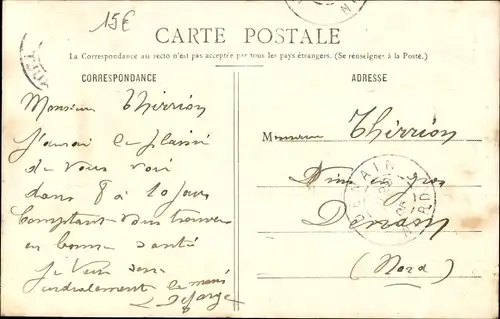 15€
CARTE POSTALE
La Correspondance au recto n'est pas acceptée par tous les pays étrangers. (Se renseigner à la Poste.)
CORRESPONDANCE
Monsieur Thirrion
J'aurai le plaisir
de vous voir
dans 8 à 10 jours
Comptant vous trouver
en bonne santé
je vous serre
cordialement la main
ADRESSE
Monsieur Thirrion
Vins en gros
Denain
(Nord)
DENAIN
NORD